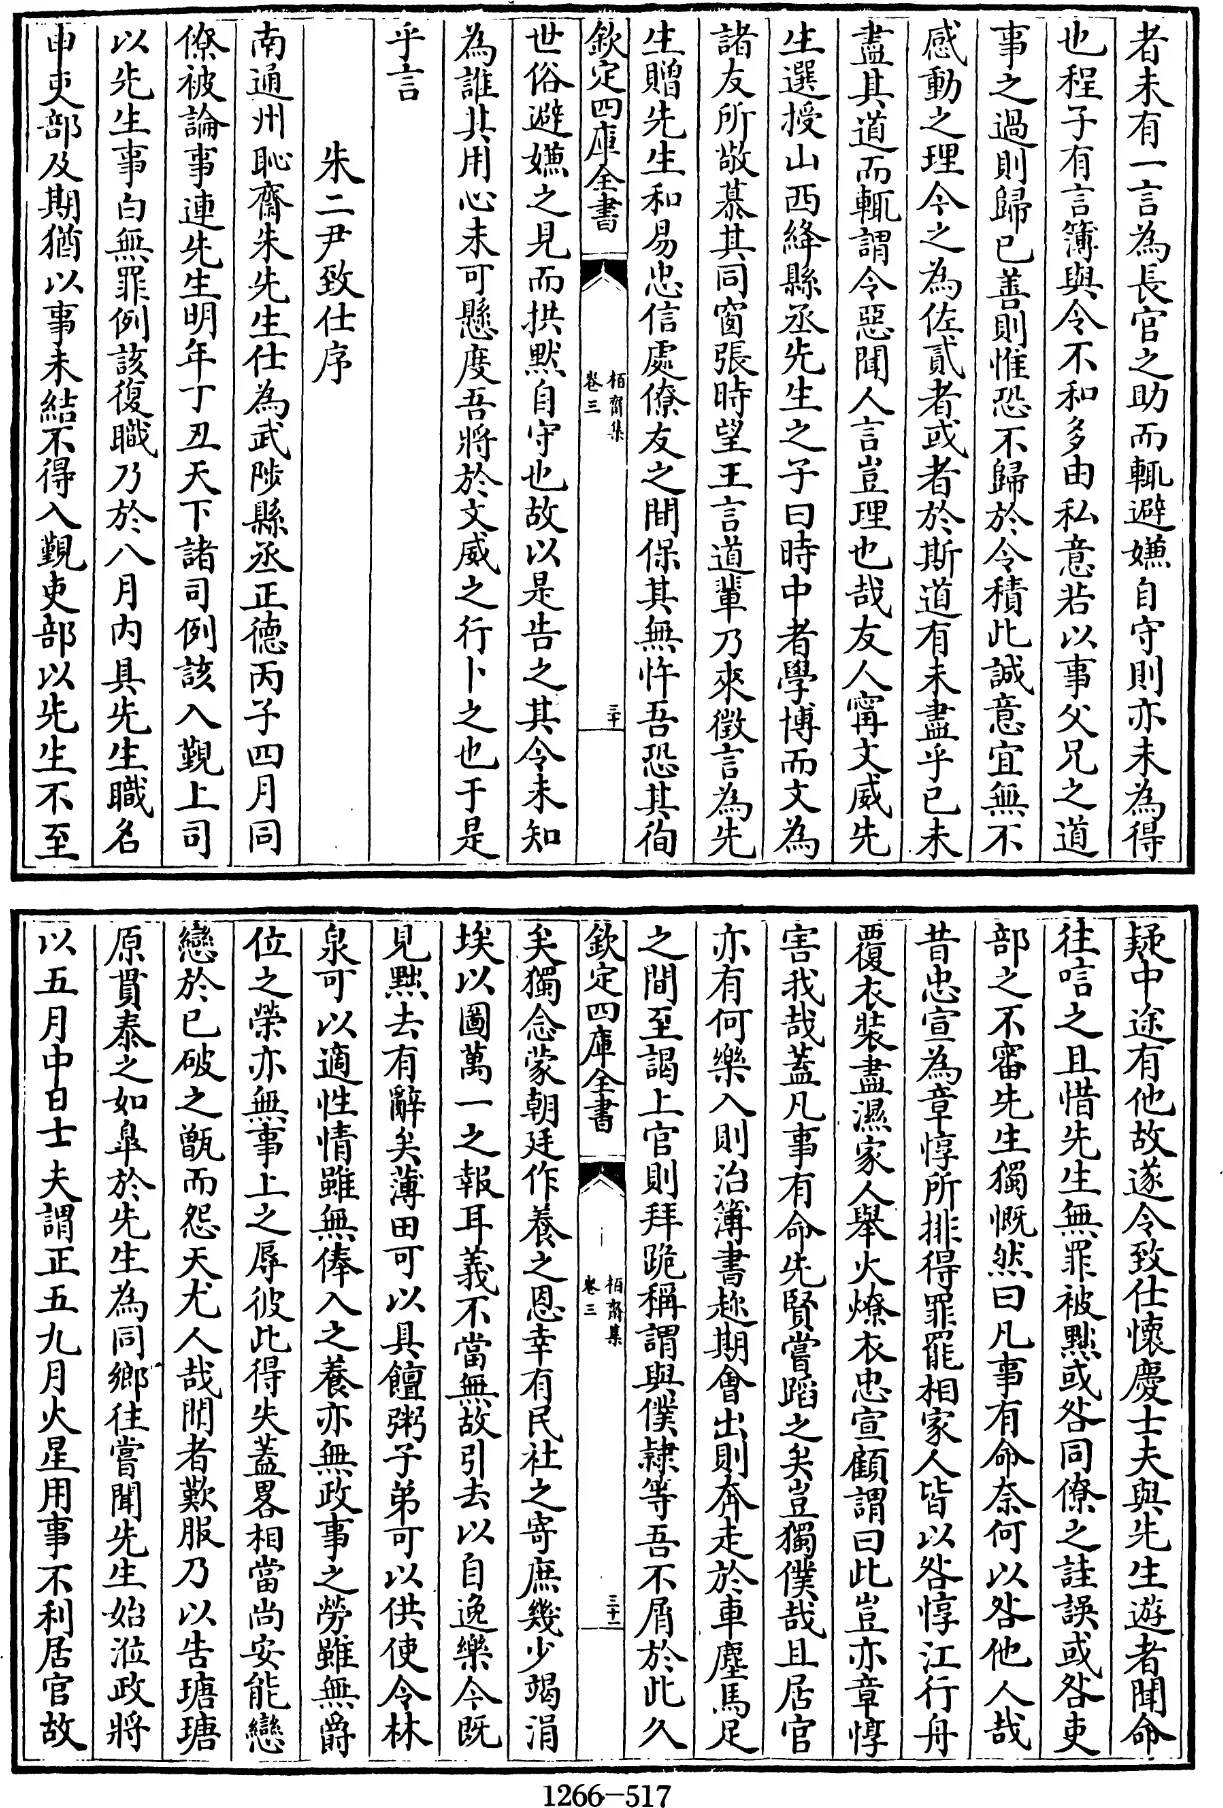 者未有一言為長官之助而輒避嫌自守則亦未為得
也程子有言簿與令不和多由私意若以事父兄之道
事之過則歸已善則惟恐不歸於令積此誠意宜無不
感動之理今之為佐貳者或者於斯道有未盡乎已未
盡其道而輒謂令惡聞人言豈理也哉友人甯文威先
生選授山西絳縣丞先生之子曰時中者學博而文為
諸友所敬慕其同窗張時望王言道輩乃來徵言為先
生贈先生和易忠信處僚友之間保其無忤吾恐其徇
欽定四庫全書
栢齋集
卷三
三十
世俗避嫌之見而拱默自守也故以是告之其令未知
為誰其用心未可懸度吾將於文威之行卜之也于是
乎言
朱二尹致仕序
南通州恥齋朱先生仕為武陟縣丞正德丙子四月同
僚被論事連先生明年丁丑天下諸司例該入覲上司
以先生事白無罪例該復職乃於八月內具先生職名
申吏部及期猶以事未結不得入覲吏部以先生不至
疑中途有他故遂令致仕懷慶士夫與先生遊者聞命
往唁之且惜先生無罪被黜或咎同僚之詿誤或咎吏
部之不審先生獨慨然曰凡事有命奈何以咎他人哉
昔忠宣為章惇所排得罪罷相家人皆以咎惇江行舟
覆衣裝盡濕家人舉火燎衣忠宣顧謂曰此豈亦章惇
害我哉蓋凡事有命先賢嘗蹈之矣豈獨僕哉且居官
亦有何樂入則治簿書趂期會出則奔走於車塵馬足
之間至謁上官則拜跪稱謂與僕隷等吾不屑於此久
欽定四庫全書
栢齋集
卷三
三十一
矣獨念蒙朝廷作養之恩幸有民社之寄庶幾少竭涓
埃以圖萬一之報耳義不當無故引去以自逸樂今既
見黜去有辭矣薄田可以具饘粥子弟可以供使令林
泉可以適性情雖無俸入之養亦無政事之勞雖無爵
位之榮亦無事上之辱彼此得失蓋畧相當尚安能戀
戀於已破之甑而怨天尤人哉聞者歎服乃以告瑭瑭
原貫泰之如臯於先生為同鄉往嘗聞先生始涖政將
以五月中日士夫謂正五九月火星用事不利居官故
1266-517